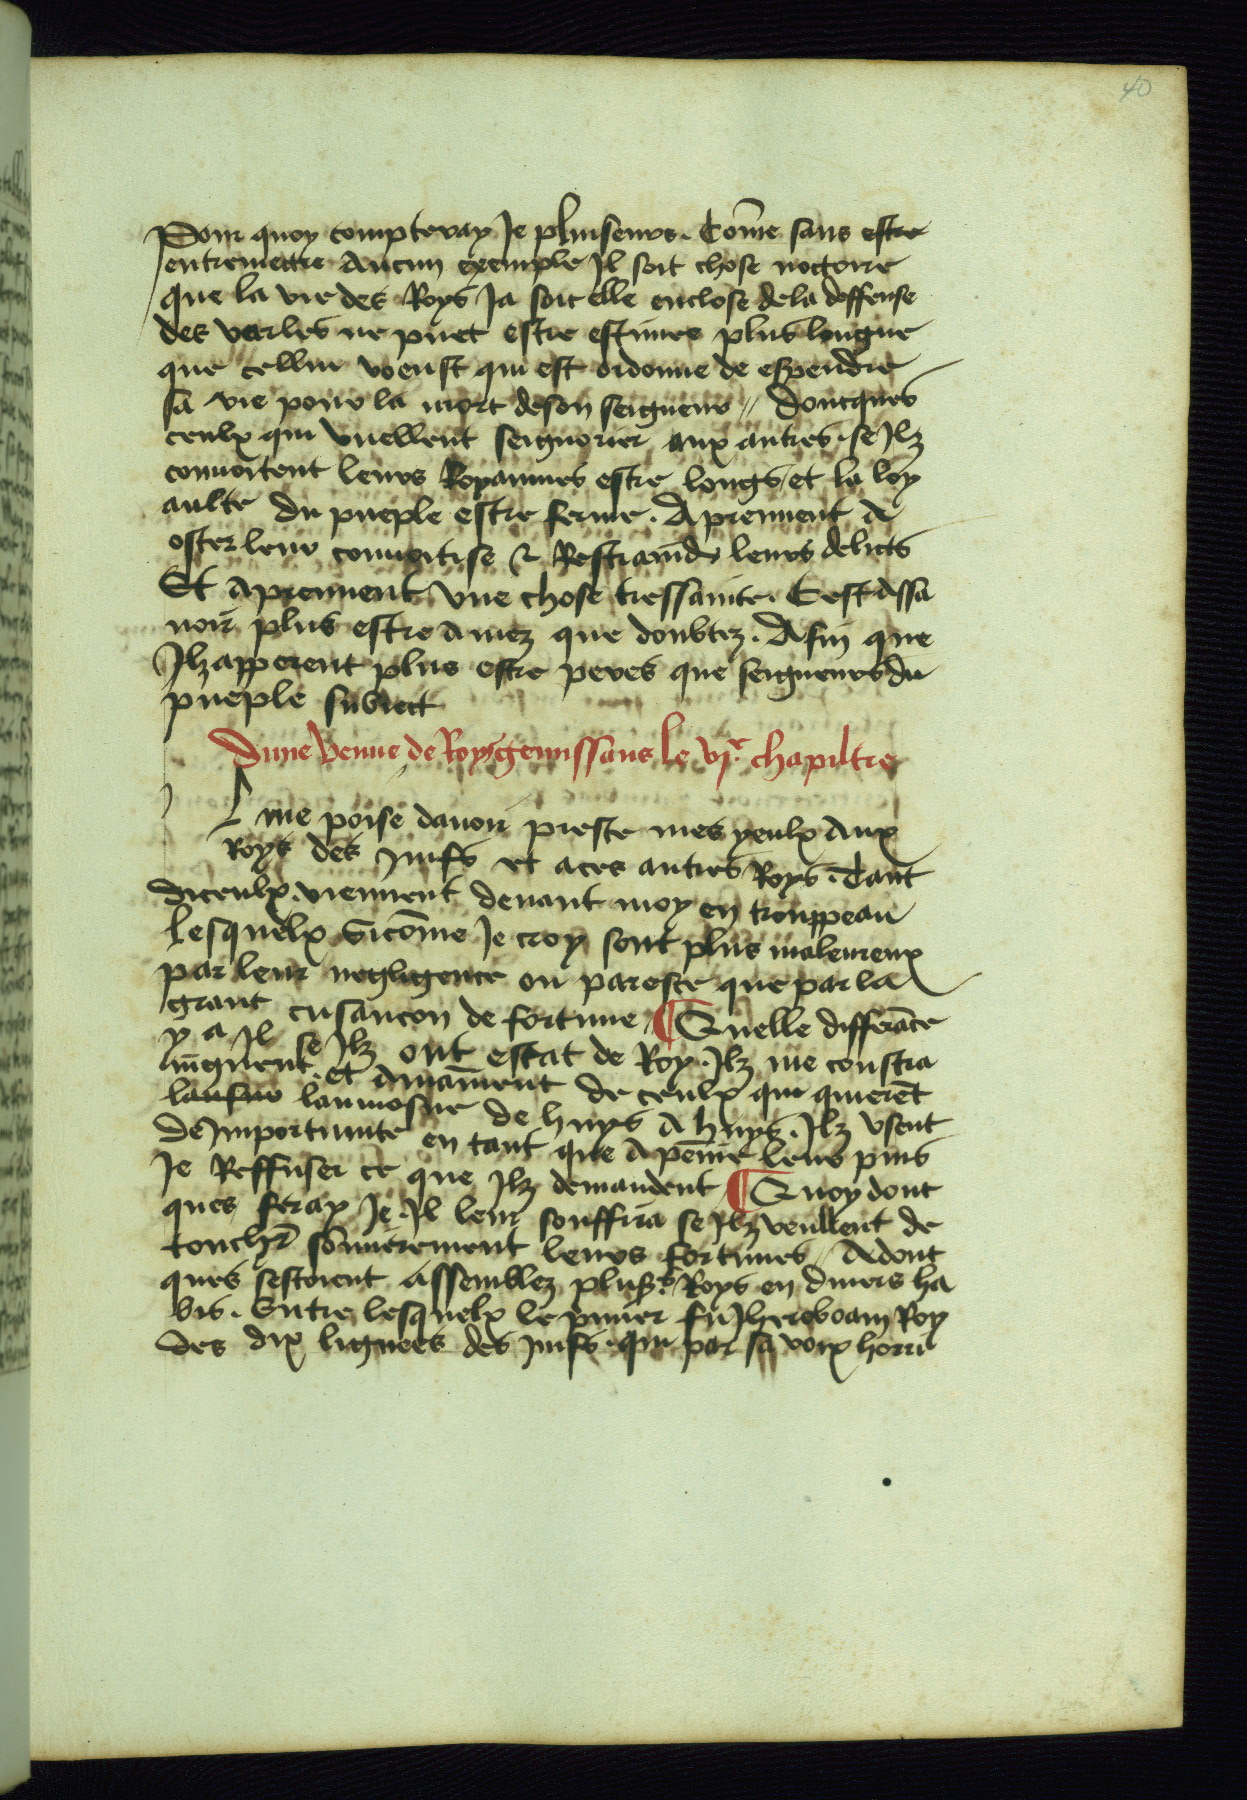 40
Pour quoy compteray Je pluiseurs. Cõme sans estre
entremettre Aucun exemple Jl soit chose nottoire
que la vie des Roys Ja soit elle enclose dela deffense
des varles ne puet estre estimee plus longue
que cellui voeust qui est ordonne de espendre
sa vie pour la mort deson seigneur // Doncques
ceulx qui vuellent seignorier aux autres. se Jlz
convoitent leurs Royaumes estre longs / et la loy
aulte du pueple estre ferme. Aprennent A
oster leur convoitise & Restraindr leurs delicts
Et Aprennent vne chose tressainte. Cest Assa
uoir plus estre Amez que doubtez. Afin que
Jlz apperent plus estre peres que seigneurs du
pueple subiect
Dune venue de Roys gemissans le vj.e chapiltre
Jl me poise dauoir preste mes yeulx Aux
Roys des Juifs et aces autres Roys. Tant
diceulx. viennent deuant moy en trouppeau
Lesquelx Sicõme Je croy sont plus maleureux
par leur negligence ou paresce que par la
grant cusancon de fortune ¶ Quelle differãce
y a Jl se Jlz ont estat de Roy. Jlz me constra
ingnent. et Amaiñent de ceulx qui quierẽt
lausno laumosne de huys A huys. Jlz vsent
de Jmportunite en tant que Apeine leur puis
Je Reffuser ce que Jlz demandent ¶ Quoy dont
ques feray Je. Jl leur souffira se Jlz veullent de
touchr̃ sõmierement leurs fortunes // Adont
ques sestoient Assemblez plusrs Roys en diuers ha
bis. Entre lesquelx le pmier fu Jheroboam Roy
des dix lignees des Juifs. qui par sa voix horri